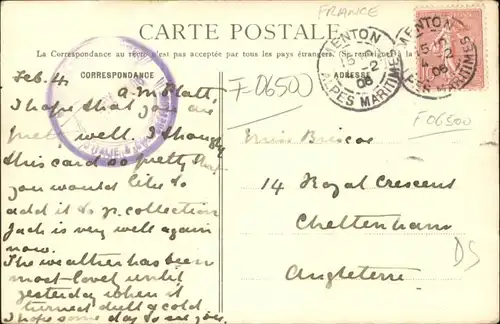 FRANCE
CARTE POSTALE
La Correspondance au recto n'est pas acceptée par tous les pays étrangers. (Se renseigner
CORRESPONDANCE
ADRESSE
MENTON
5-2
06
ALPES MARITIMES
MENTON
5-2
06
ALPES MARITIMES
F-06500
F06500
Feb. 4
A. M. Platt
I hope that you are
well. I thought
this card so pretty that
you would like to
add it to yr. collection
Jack is very well again
now.
The weather has been
most lovely until
yesterday when it
turned dull & cold
I hope some day to see you
Miss Briscoe
14 Royal Crescent
Cheltenham
Angleterre
DS